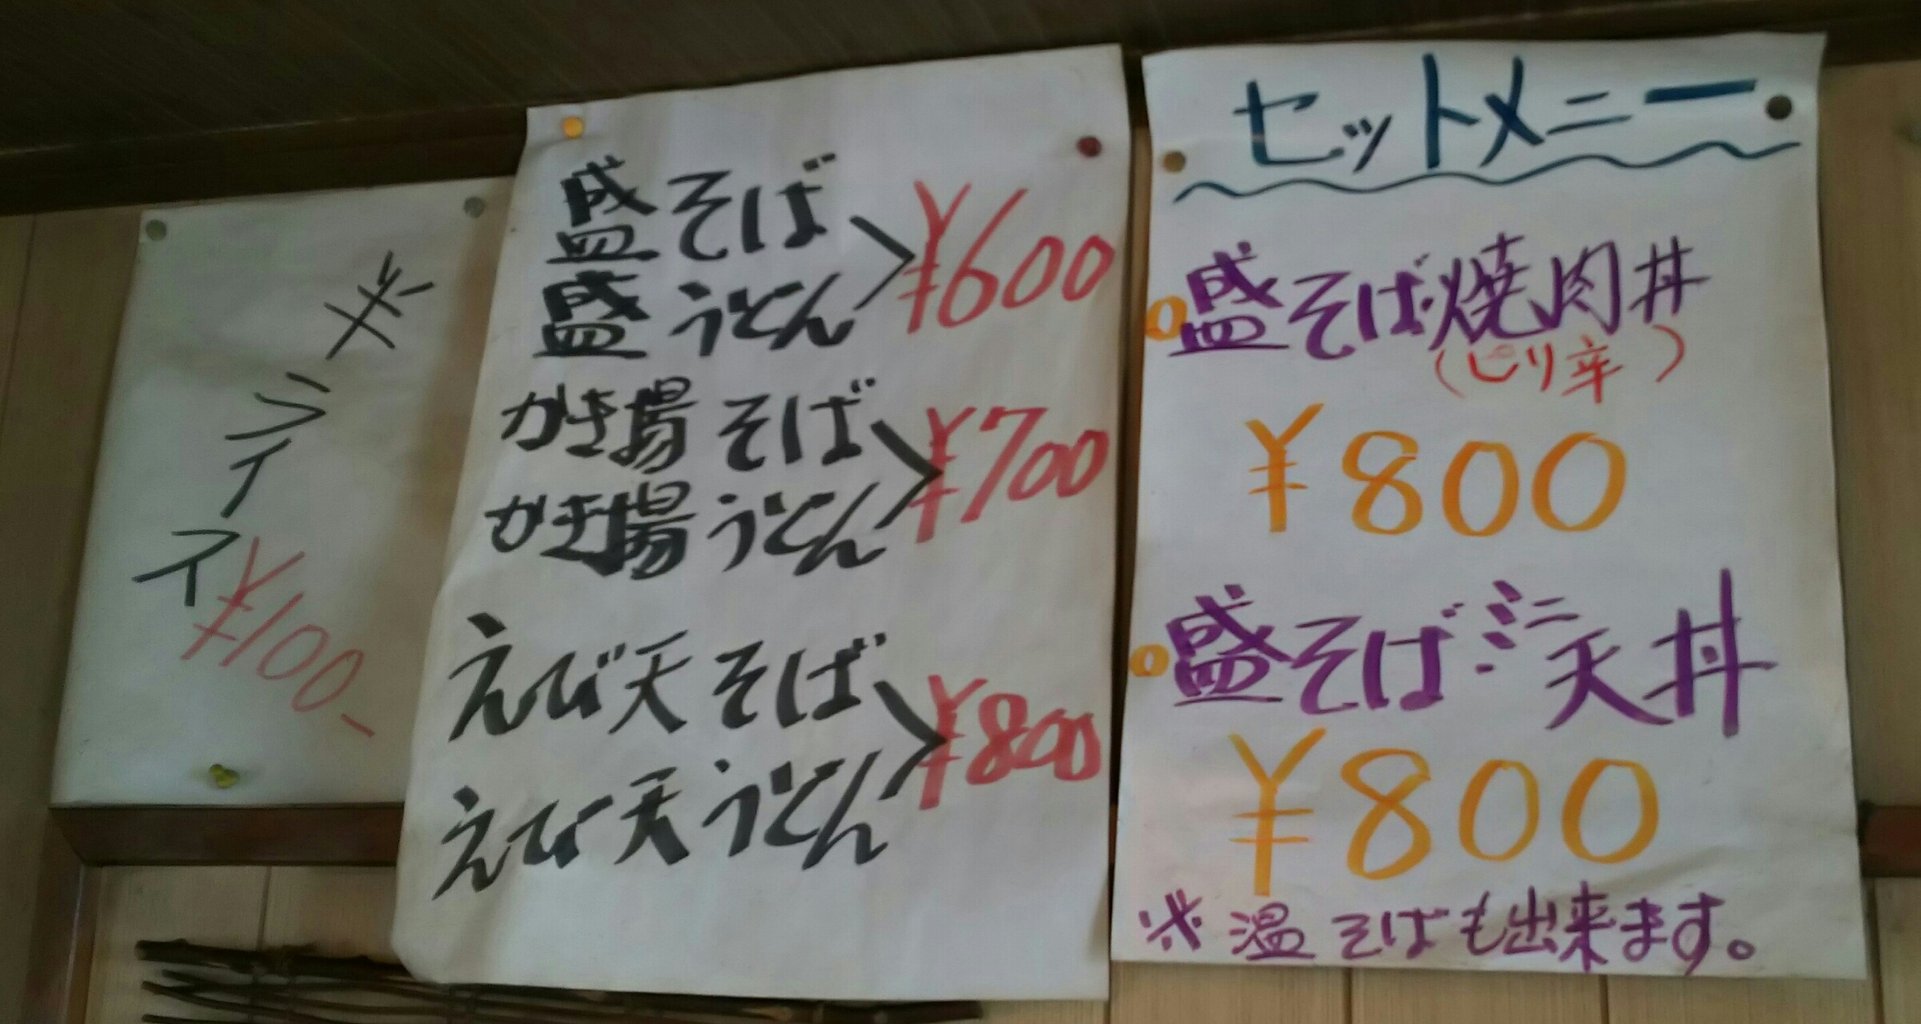 半ライス
¥100-
盛そば
盛うどん
¥600
かき揚そば
かき揚うどん
¥700
えび天そば
えび天うどん
¥800
セットメニー
○盛そば・焼肉丼
(ピリ辛)
¥800
○盛そばミニ天丼
¥800
※温そばも出来ます。